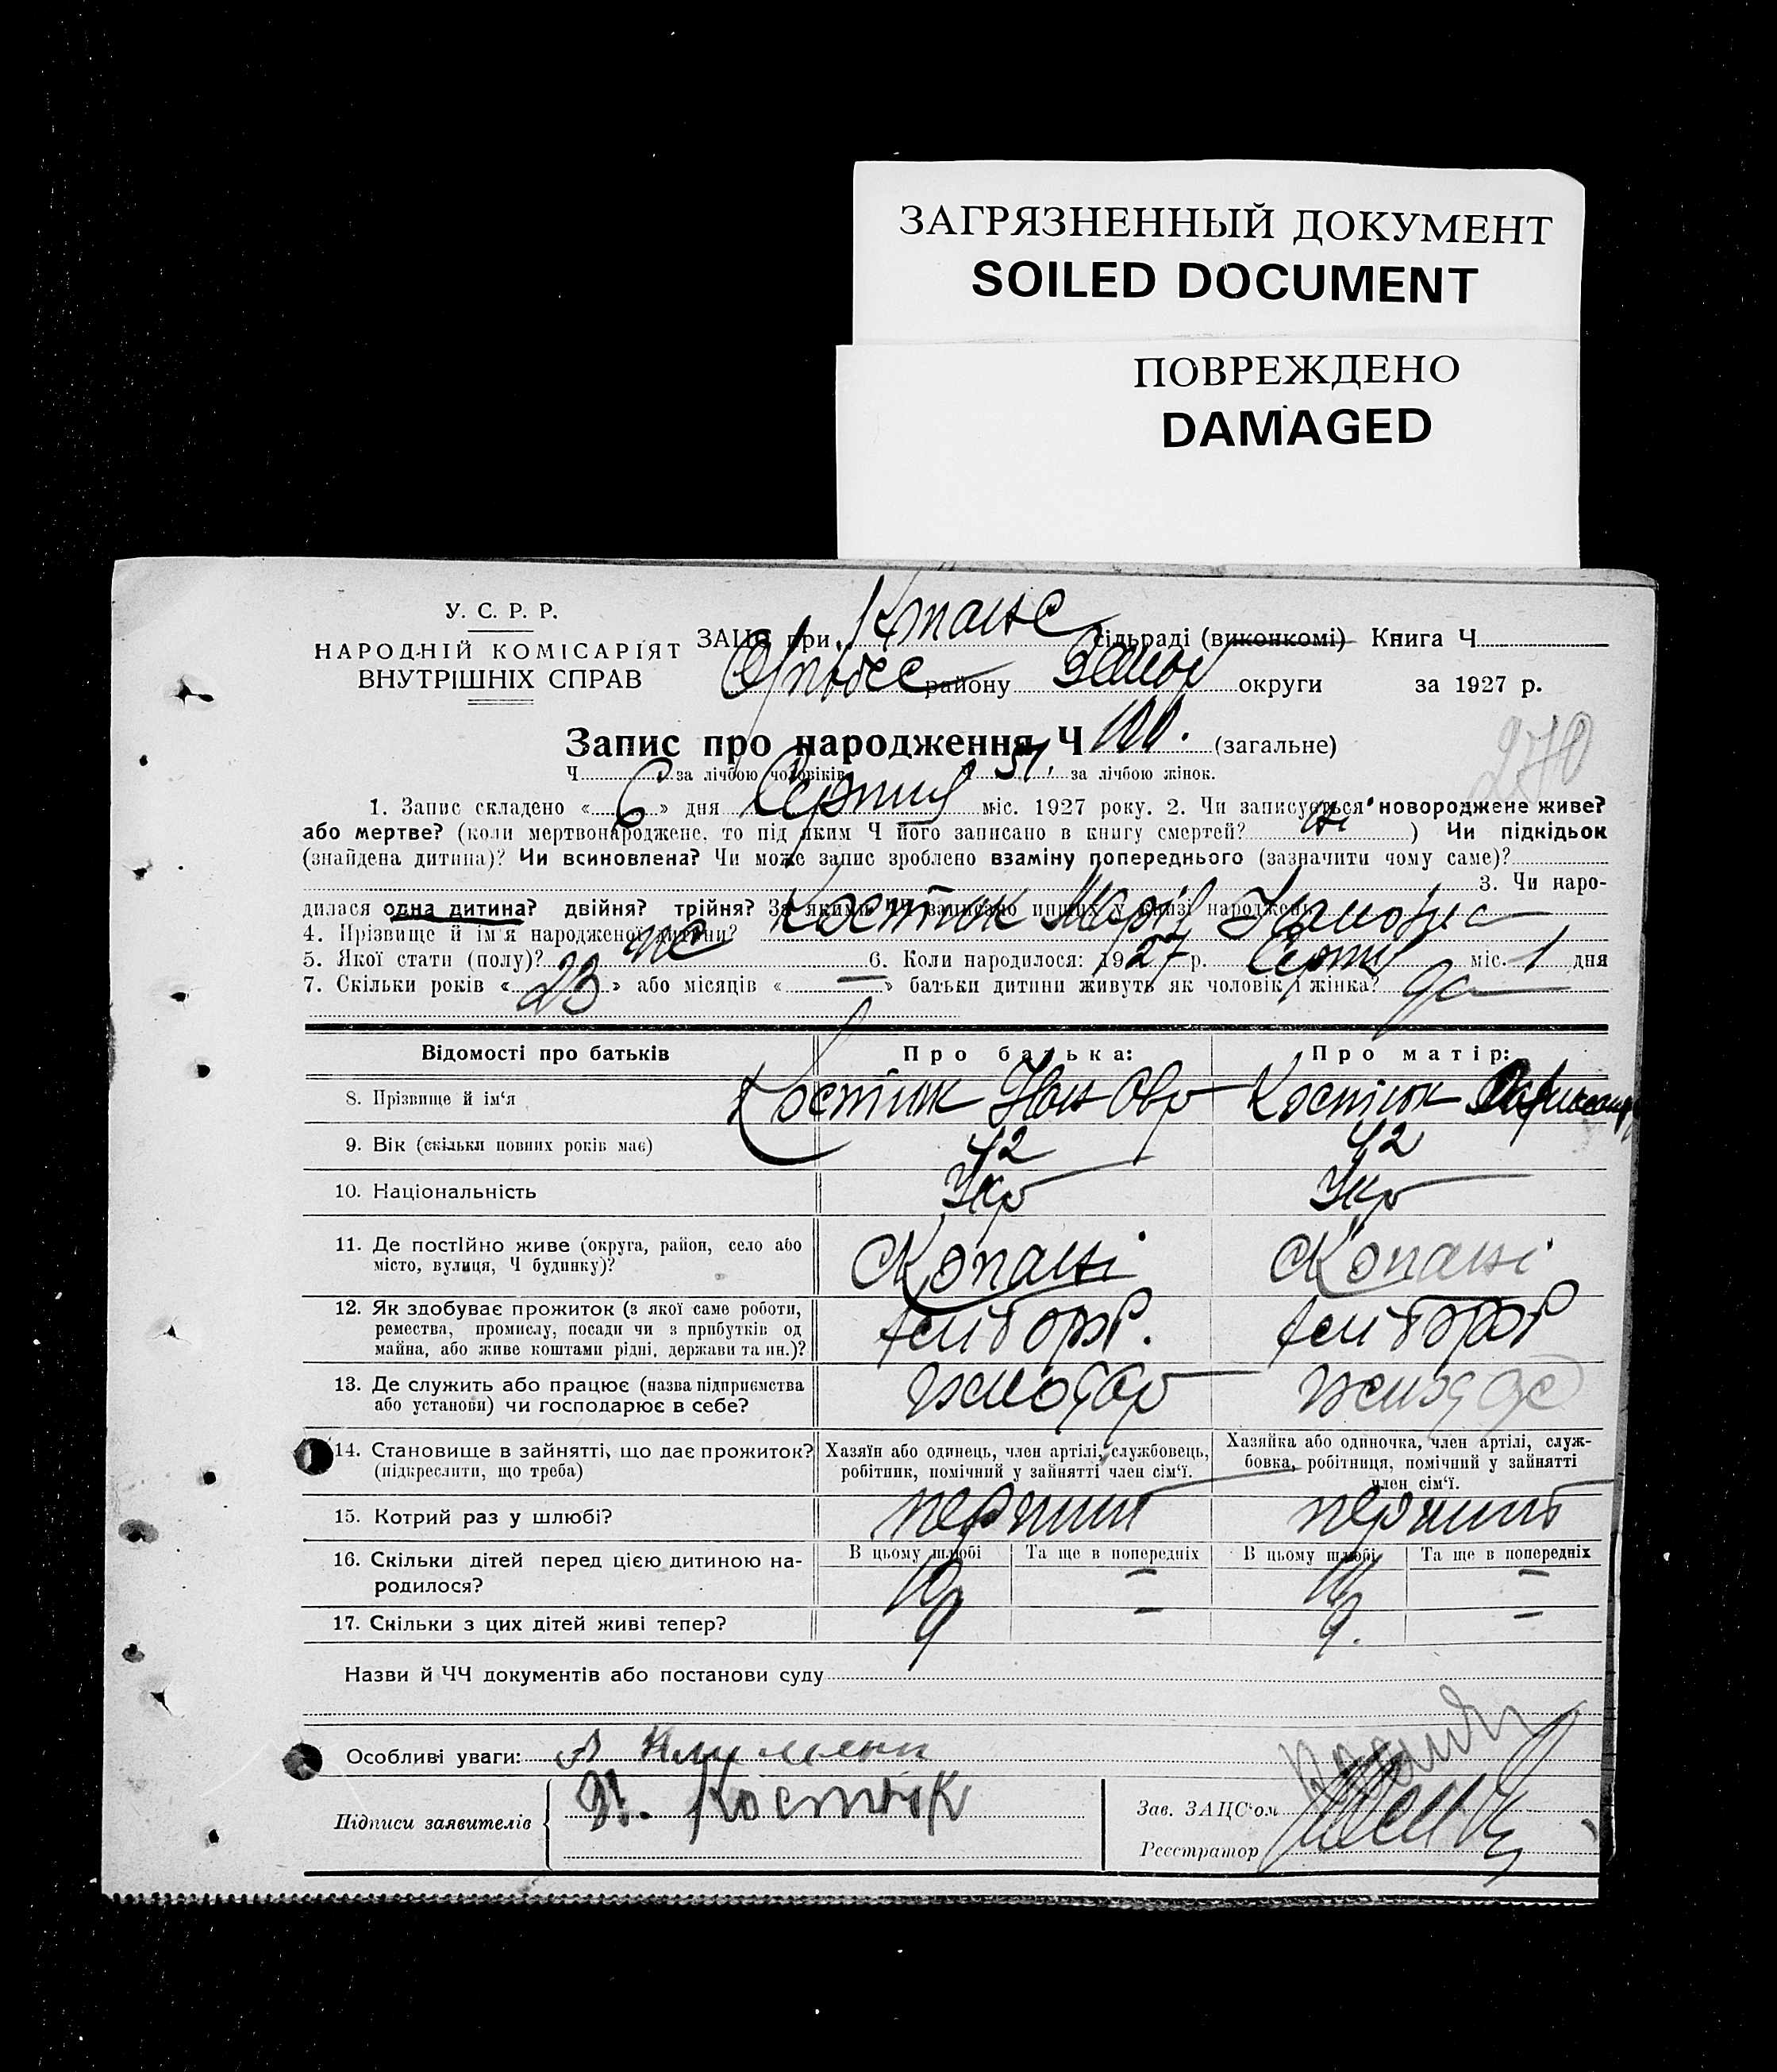 ЗАГРЯЗНЕННЫЙ ДОКУМЕНТ
SOILED DOCUMENT
ПОВРЕЖДЕНО
DAMAGED
У. С. Р. Р.
НАРОДНІЙ КОМІСАРІЯТ
ВНУТРІШНІХ СПРАВ
ЗАЦС при сільраді (виконкомі) Книга Ч
району округи за 1927 р.
Запис про народження Ч 100. (загальне)
Ч за лічбою чоловіків Ч 51, за лічбою жінок.
270
1. Запис складено « 6 » дня Серпня міс. 1927 року. 2. Чи записується новороджене живе?
або мертве? (коли мертвонароджене, то під яким Ч його записано в книгу смертей? ні ) Чи підкідьок
(знайдена дитина)? Чи всиновлена? Чи може запис зроблено взаміну попереднього (зазначити чому саме)?
3. Чи наро-
дилася одна дитина? двійня? трійня? За якими ЧЧ записано инших у книзі народжень
4. Прізвище й ім'я народженої дитини? Костюк Марія
5. Якої стати (полу)? же 6. Коли народилося: 1927 р. Серпня міс. 1 дня
7. Скільки років « 23 » або місяців « — » батьки дитини живуть як чоловік і жінка? да
Відомості про батьків Про батька: Про матір:
8. Прізвище й ім'я Костюк Костюк
9. Вік (скільки повних років має) 42 42
10. Національність Укр Укр
11. Де постійно живе (округа, район, село або Копані Копані
місто, вулиця, Ч будинку)?
12. Як здобуває прожиток (з якої саме роботи,
ремества, промислу, посади чи з прибутків од
майна, або живе коштами рідні, держави та ин.)?
13. Де служить або працює (назва підприємства
або установи) чи господарює в себе?
14. Становище в зайнятті, що дає прожиток? Хазяїн або одинець, член артілі, службовець, Хазяйка або одиночка, член артілі, служ-
(підкреслити, що треба) робітник, помічний у зайнятті член сім'ї. бовка, робітниця, помічний у зайнятті
член сім'ї.
15. Котрий раз у шлюбі? перший перший
16. Скільки дітей перед цією дитиною на- В цьому шлюбі Та ще в попередніх В цьому шлюбі Та ще в попередніх
родилося? 10 — 10 —
17. Скільки з цих дітей живі тепер? 9 — 9. —
Назви й ЧЧ документів або постанови суду
Особливі уваги:
Підписи заявителів Костюк
Зав. ЗАЦС'ом
Реєстратор